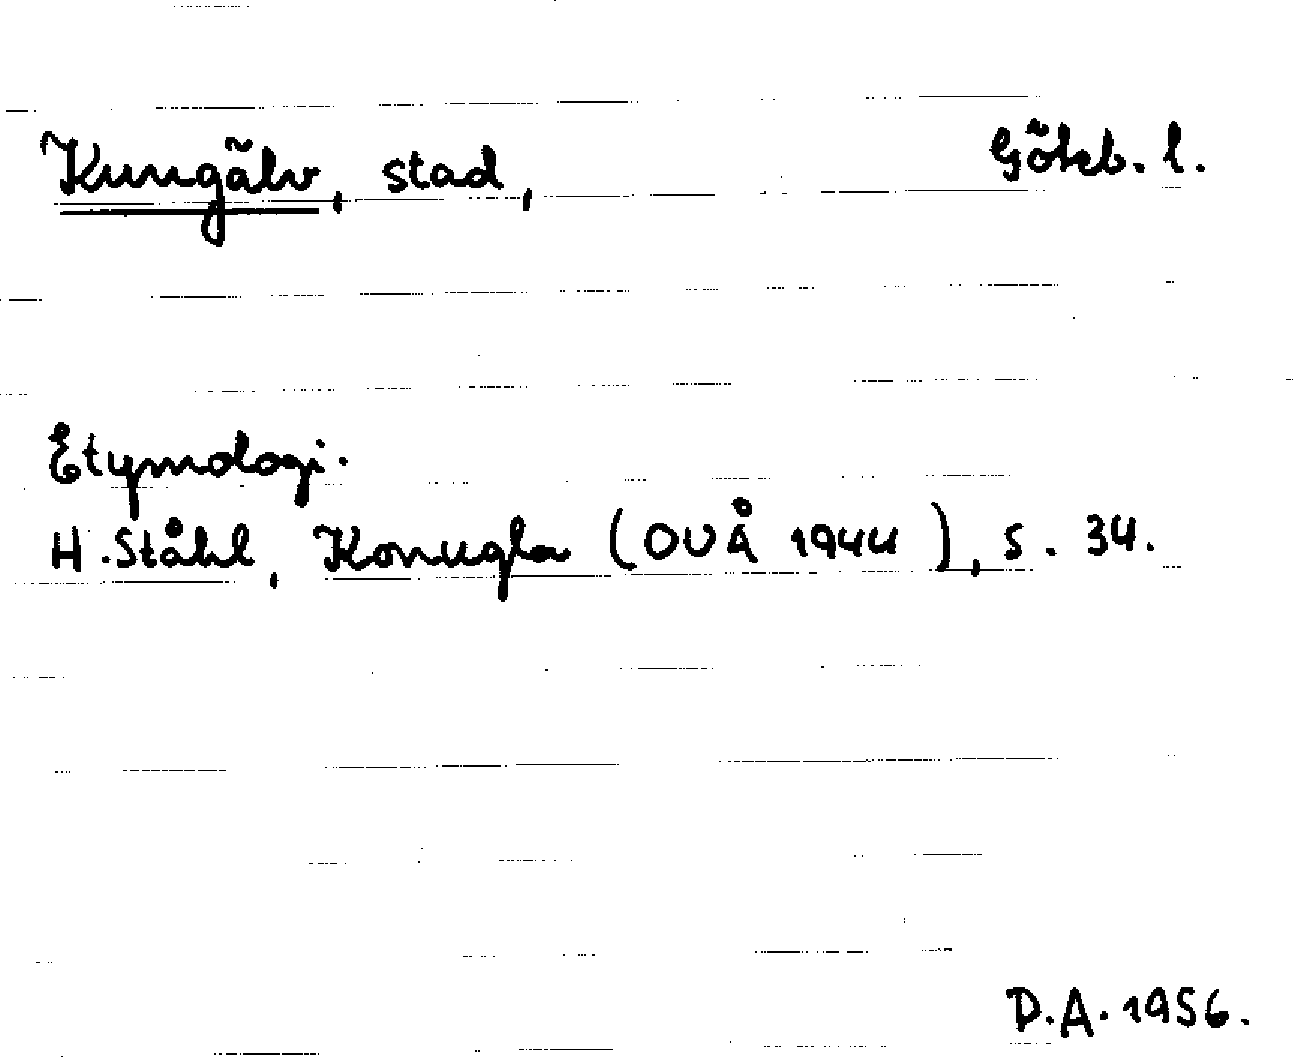 Kungälv, stad, Göteb. l.
Etymologi.
H. Ståhl, Konugla (OUÅ 1944), s. 34.
D.A. 1956.